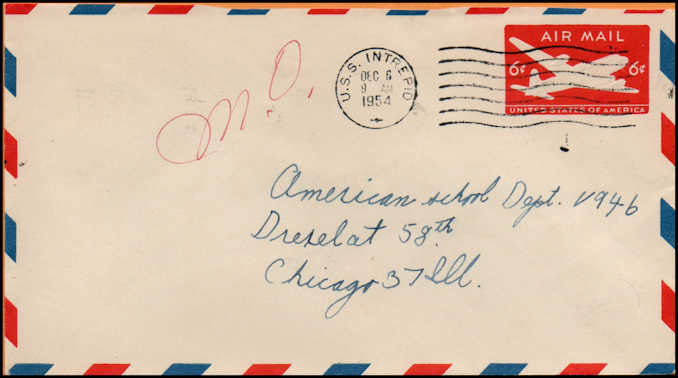 AIR MAIL
6¢ 6¢
UNITED STATES OF AMERICA
U.S.S. INTREPID
DEC 6
9 AM
1954
M.O.
American school Dept. V946
Drexel at 58th.
Chicago 37 Ill.